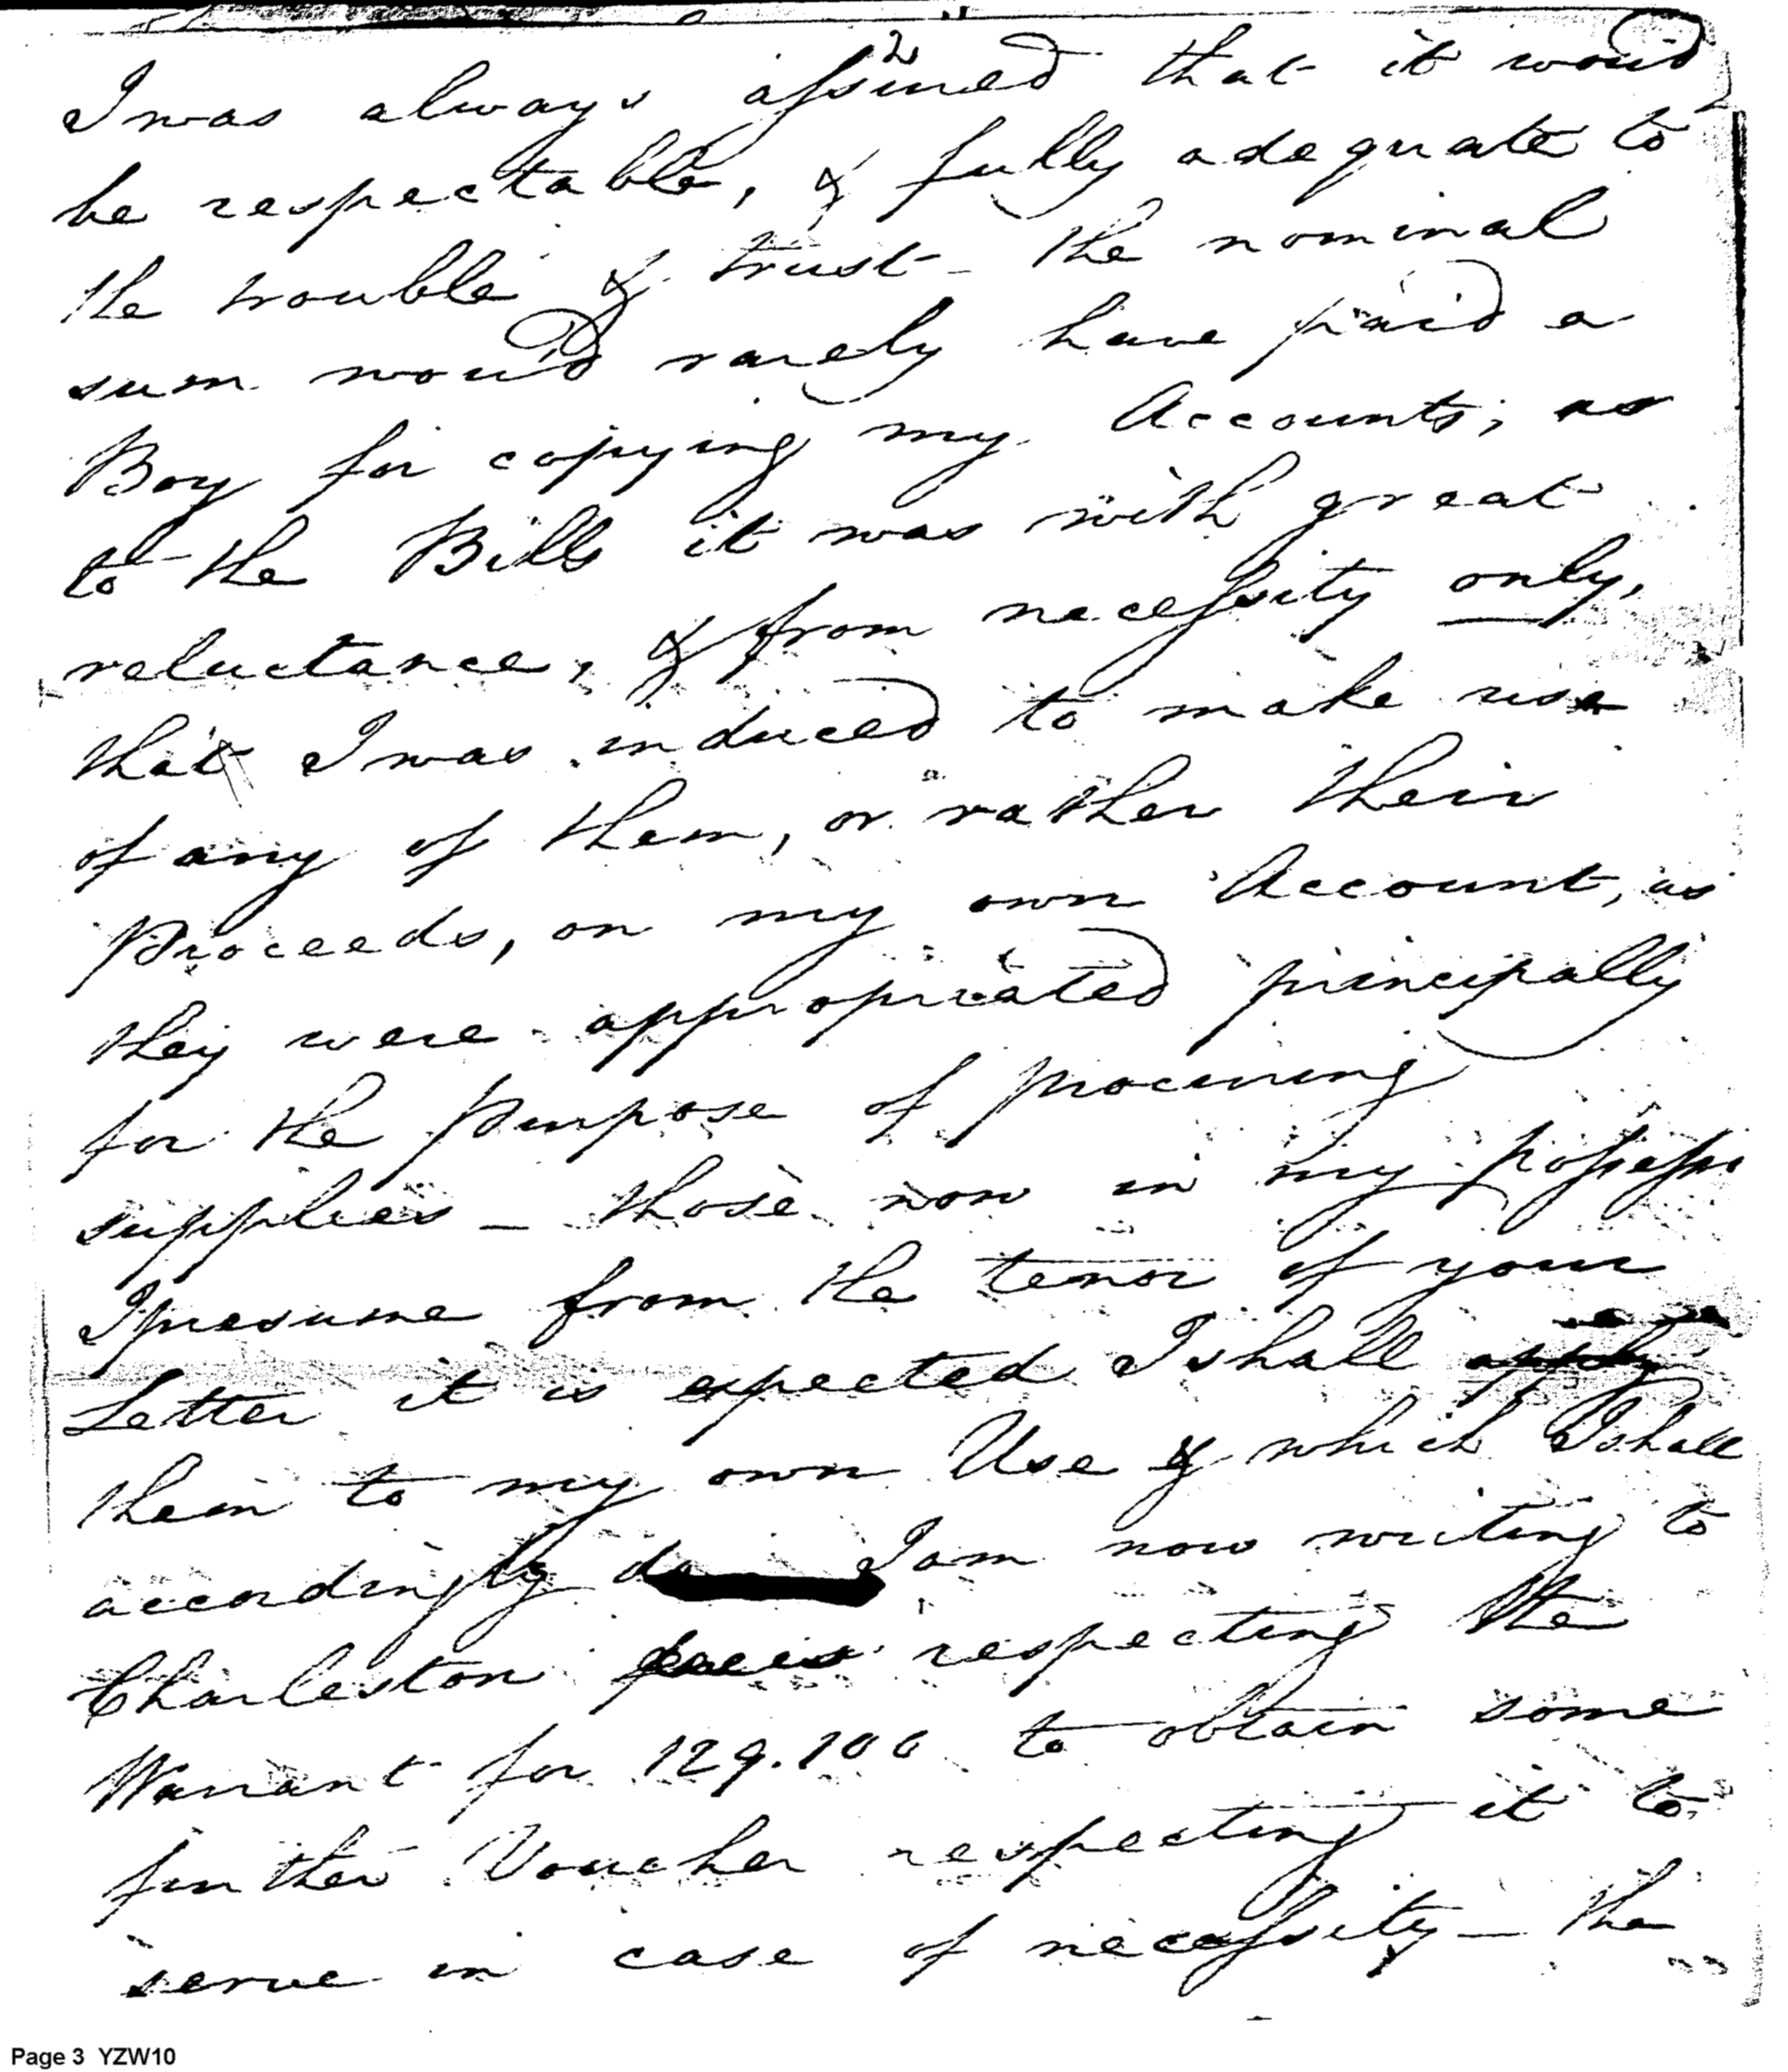 2
I was always assured that it would
be respectable, & fully adequate to
the trouble & trust - the nominal
sum wou'd rarely have paid a
Boy for copying my Accounts; as
to the Bills it was with great
reluctance, & from necessity only,
that I was induced to make use
of any of them, or rather their
Proceeds, on my own Account, as
they were appropriated principally
for the Purpose of procuring
supplies - those now in my possess
I presume from the tenor of your
Letter it is expected I shall apply
them to my own Use & which I shall
accordingly do I am now writing to
Charleston respecting the
Warrant for 129.100 to obtain some
further Voucher respecting it to
serve in case of necessity - the
Page 3 YZW10